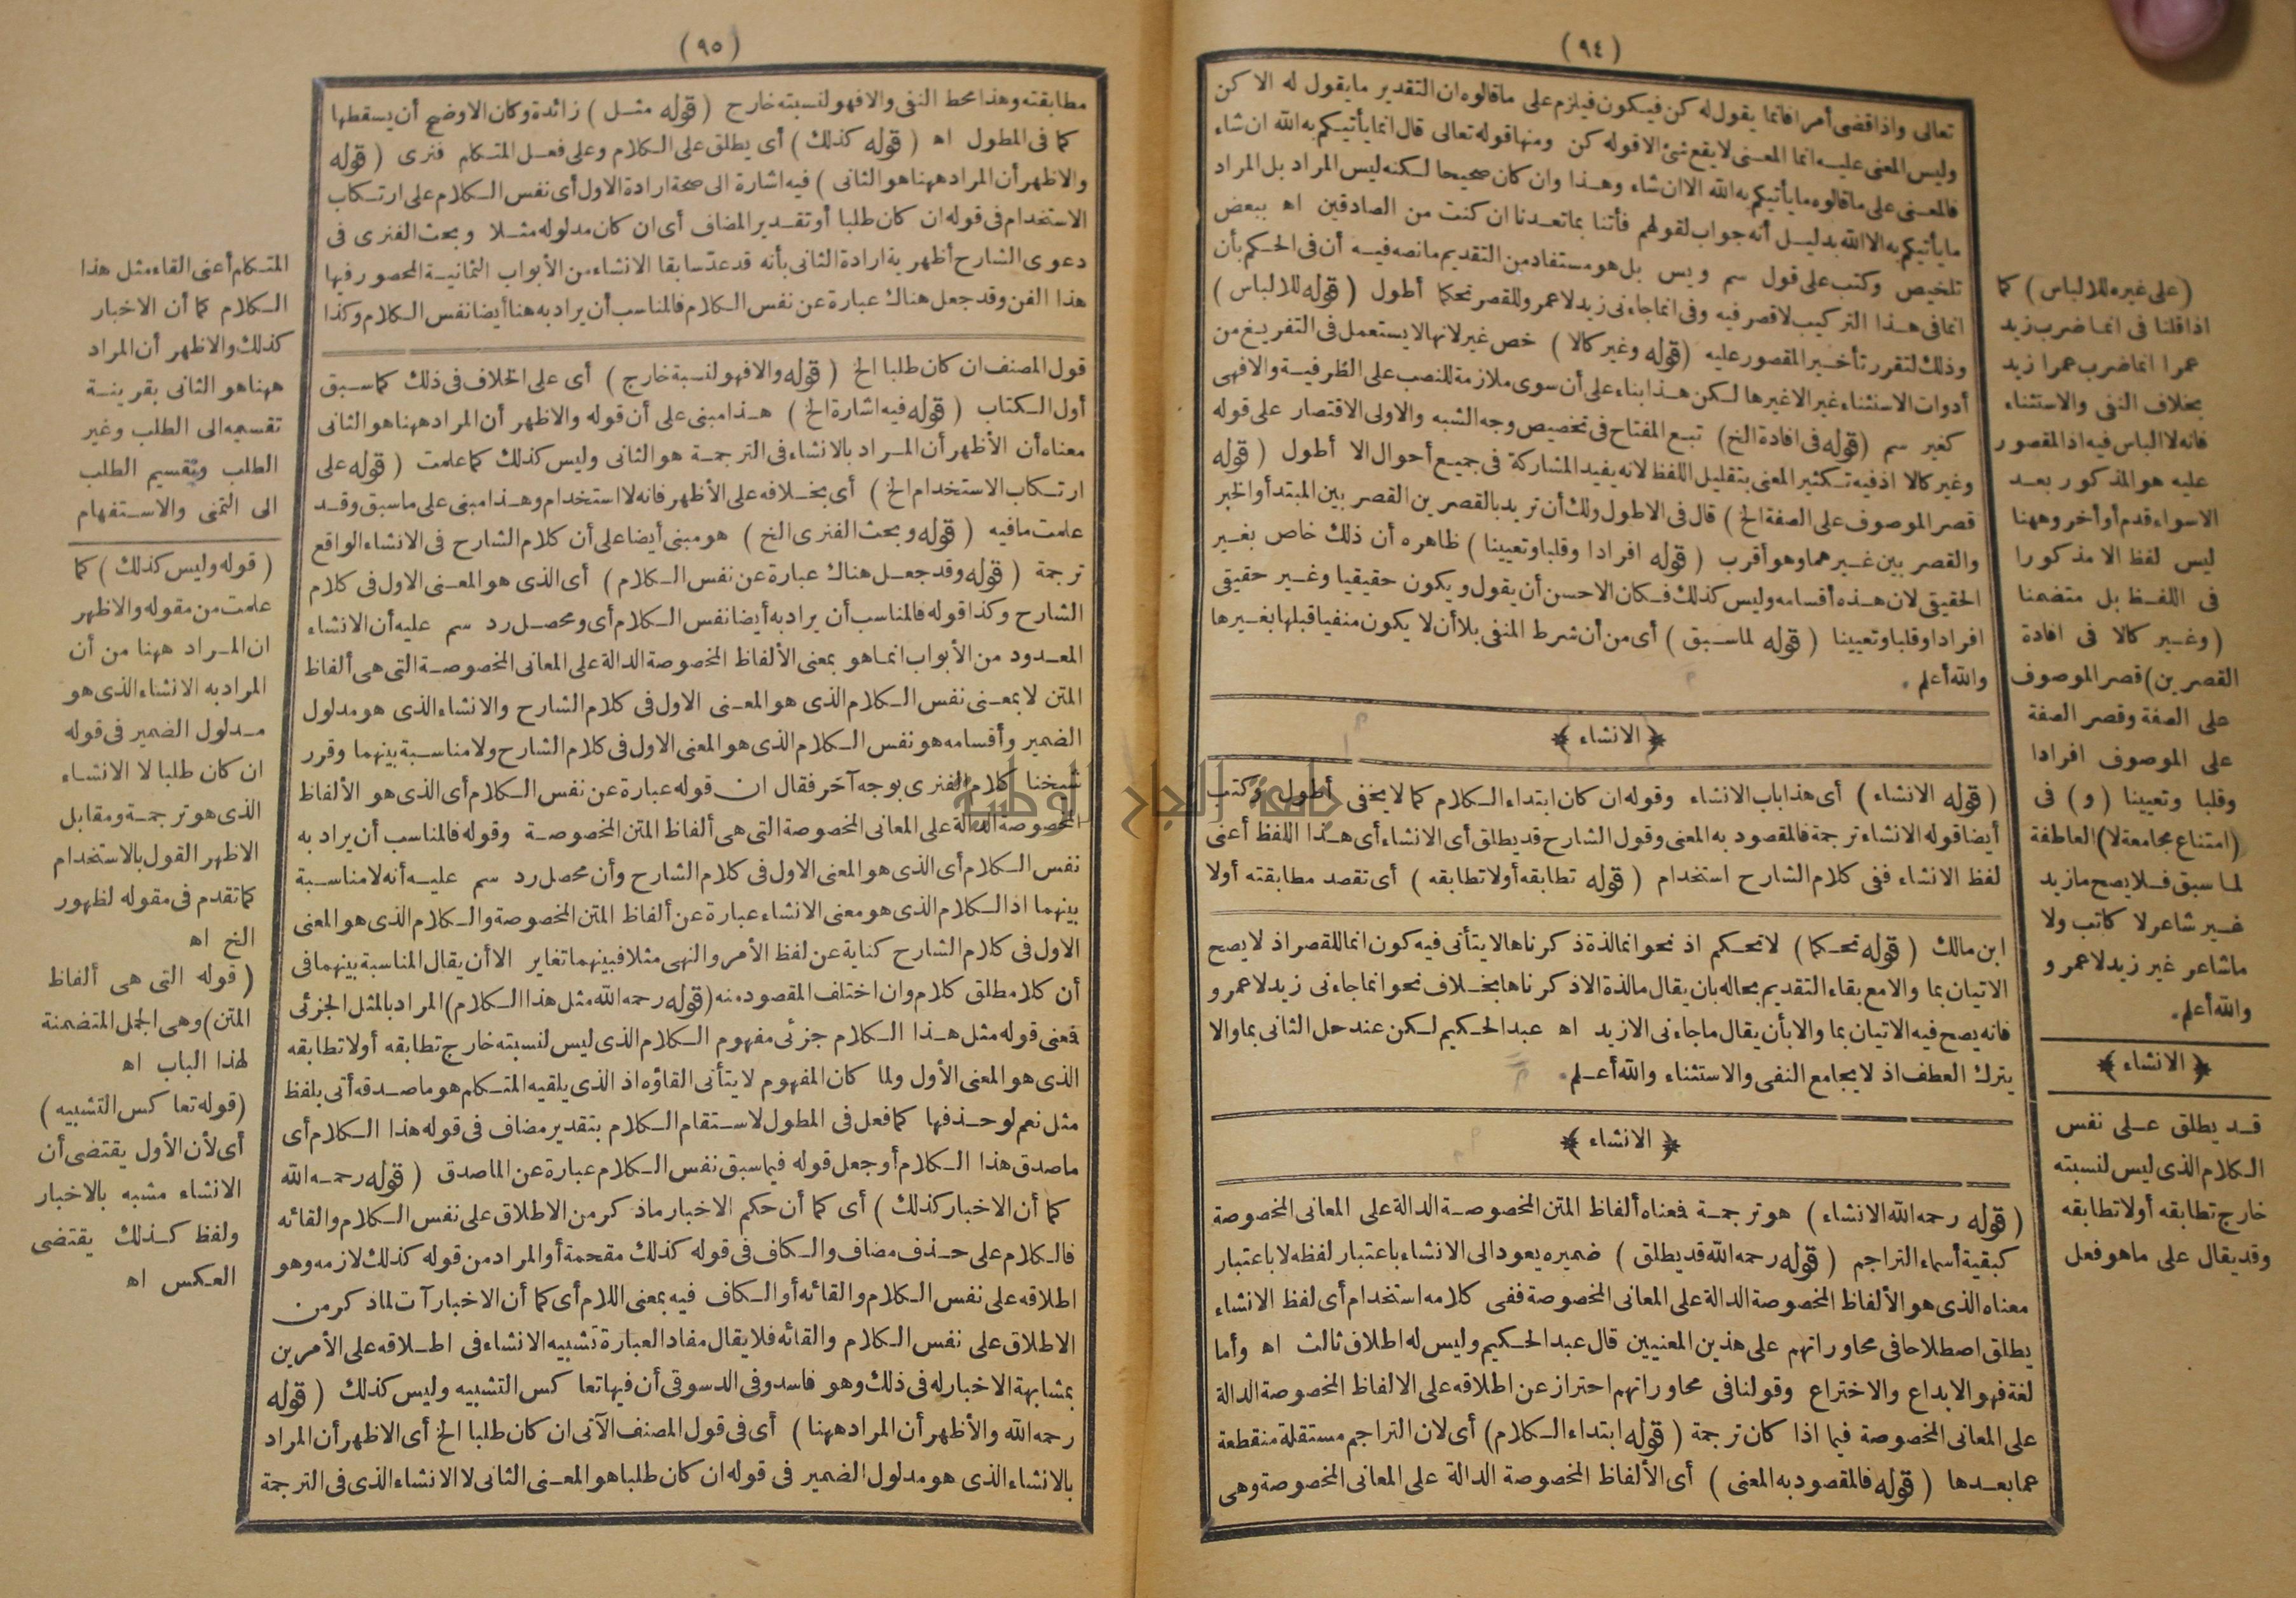 (٩٤)
تعالى واذا قضى أمرا فانما يقول له كن فيكون فيلزم على ماقالوه ان التقدير ما يقول له الا كن
وليس المعنى عليه انما المعنى لا يقع شئ الا قوله كن ومنها قوله تعالى قال انما يأتيكم به الله ان شاء
فالمعنى على ماقالوه ما يأتيكم به الله الا ان شاء وهذا وان كان صحيحا لكنه ليس المراد بل المراد
ما يأتيكم به الا الله بدليل أنه جواب لقولهم فأتنا بما تعدنا ان كنت من الصادقين اه ببعض
تلخيص وكتب على قول سم ويس بل هو مستفاد من التقديم مانصه فيه أن فى الحكم بأن
انما فى هذا التركيب لا قصر فيه وفى انما جاءنى زيد لا عمرو للقصر تحكما أطول (قوله للالباس)
وذلك لتقرر تأخير المقصور عليه (قوله وغير كالا) خص غير لانها لا يستعمل فى التفريغ من
أدوات الاستثناء غير الا غيرها لكن هذا بناء على أن سوى ملازمة للنصب على الظرفية والا فهى
كغير سم (قوله فى افادة الخ) تبع المفتاح فى تخصيص وجه الشبه والاولى الاقتصار على قوله
وغير كالا اذ فيه تكثير المعنى بتقليل اللفظ لانه يفيد المشاركة فى جميع أحوال الا أطول (قوله
قصر الموصوف على الصفة الخ) قال فى الاطول ولك أن تريد بالقصرين القصر بين المبتدأ والخبر
والقصر بين غيرهما وهو أقرب (قوله افرادا وقلبا وتعيينا) ظاهره أن ذلك خاص بغير
الحقيقى لان هذه أقسامه وليس كذلك فكان الاحسن أن يقول ويكون حقيقيا وغير حقيقى
افرادا وقلبا وتعيينا (قوله لما سبق) أى من أن شرط المنفى بلا أن لا يكون منفيا قبلها بغيرها
والله أعلم.
﴿الانشاء﴾
(قوله الانشاء) أى هذا باب الانشاء وقوله ان كان ابتداء الكلام كما لا يخفى أطول وكتب
أيضا قوله الانشاء ترجمة فالمقصود به المعنى وقول الشارح قد يطلق أى الانشاء أى هذا اللفظ أعنى
لفظ الانشاء ففى كلام الشارح استخدام (قوله تطابقه أولا تطابقه) أى تقصد مطابقته أولا
ابن مالك (قوله تحكما) لا تحكم اذ نحو انما لذة ذكرناها لا يتأتى فيه كون انما للقصر اذ لا يصح
الاتيان بما والا مع بقاء التقديم بحاله بان يقال ما لذة الا ذكرناها بخلاف نحو انما جاءنى زيد لا عمرو
فانه يصح فيه الاتيان بما والا بأن يقال ما جاءنى الا زيد اه عبد الحكيم لكن عند حل الثانى بما والا
يترك العطف اذ لا يجامع النفى والاستثناء والله أعلم.
﴿الانشاء﴾
(قوله رحمه الله الانشاء) هو ترجمة فمعناه ألفاظ المتن المخصوصة الدالة على المعانى المخصوصة
كبقية أسماء التراجم (قوله رحمه الله قد يطلق) ضميره يعود الى الانشاء باعتبار لفظه لا باعتبار
معناه الذى هو الألفاظ المخصوصة الدالة على المعانى المخصوصة ففى كلامه استخدام أى لفظ الانشاء
يطلق اصطلاحا فى محاوراتهم على هذين المعنيين قال عبد الحكيم وليس له اطلاق ثالث اه وأما
لغة فهو الابداع والاختراع وقولنا فى محاوراتهم احتراز عن اطلاقه على الالفاظ المخصوصة الدالة
على المعانى المخصوصة فيما اذا كان ترجمة (قوله ابتداء الكلام) أى لان التراجم مستقلة منقطعة
عما بعدها (قوله فالمقصود به المعنى) أى الألفاظ المخصوصة الدالة على المعانى المخصوصة وهى
(على غيره للالباس) كما
اذا قلنا فى انما ضرب زيد
عمرا انما ضرب عمرا زيد
بخلاف النفى والاستثناء
فانه لا الباس فيه اذ المقصور
عليه هو المذكور بعد
الا سواء قدم أو أخر وههنا
ليس لفظ الا مذكورا
فى اللفظ بل متضمنا
(وغير كالا فى افادة
القصرين) قصر الموصوف
على الصفة وقصر الصفة
على الموصوف افرادا
وقلبا وتعيينا (و) فى
(امتناع مجامعة لا) العاطفة
لما سبق فلا يصح ما زيد
غير شاعر لا كاتب ولا
ما شاعر غير زيد لا عمرو
والله أعلم.
﴿الانشاء﴾
قد يطلق على نفس
الكلام الذى ليس لنسبته
خارج تطابقه أولا تطابقه
وقد يقال على ما هو فعل
(٩٥)
مطابقته وهذا محط النفى والا فهو لنسبته خارج (قوله مثل) زائدة وكان الاوضح أن يسقطها
كما فى المطول اه (قوله كذلك) أى يطلق على الكلام وعلى فعل المتكلم فنرى (قوله
والاظهر أن المراد ههنا هو الثانى) فيه اشارة الى صحة ارادة الاول أى نفس الكلام على ارتكاب
الاستخدام فى قوله ان كان طلبا أو تقدير المضاف أى ان كان مدلوله مثلا وبحث الفنرى فى
دعوى الشارح أظهرية ارادة الثانى بأنه قد عد سابقا الانشاء من الأبواب الثمانية المحصور فيها
هذا الفن وقد جعل هناك عبارة عن نفس الكلام فالمناسب أن يراد به هنا أيضا نفس الكلام وكذا
قول المصنف ان كان طلبا الخ (قوله والا فهو لنسبة خارج) أى على الخلاف فى ذلك كما سبق
أول الكتاب (قوله فيه اشارة الخ) هذا مبنى على أن قوله والاظهر أن المراد ههنا هو الثانى
معناه أن الأظهر أن المراد بالانشاء فى الترجمة هو الثانى وليس كذلك كما علمت (قوله على
ارتكاب الاستخدام الخ) أى بخلافه على الأظهر فانه لا استخدام وهذا مبنى على ما سبق وقد
علمت مافيه (قوله وبحث الفنرى الخ) هو مبنى أيضا على أن كلام الشارح فى الانشاء الواقع
ترجمة (قوله وقد جعل هناك عبارة عن نفس الكلام) أى الذى هو المعنى الاول فى كلام
الشارح وكذا قوله فالمناسب أن يراد به أيضا نفس الكلام أى ومحصل رد سم عليه أن الانشاء
المعدود من الأبواب انما هو بمعنى الألفاظ المخصوصة الدالة على المعانى المخصوصة التى هى ألفاظ
المتن لا بمعنى نفس الكلام الذى هو المعنى الاول فى كلام الشارح والانشاء الذى هو مدلول
الضمير وأقسامه هو نفس الكلام الذى هو المعنى الاول فى كلام الشارح ولا مناسبة بينهما وقرر
شيخنا كلام الفنرى بوجه آخر فقال ان قوله عبارة عن نفس الكلام أى الذى هو الألفاظ
المخصوصة الدالة على المعانى المخصوصة التى هى ألفاظ المتن المخصوصة وقوله فالمناسب أن يراد به
نفس الكلام أى الذى هو المعنى الاول فى كلام الشارح وأن محصل رد سم عليه أنه لا مناسبة
بينهما اذ الكلام الذى هو معنى الانشاء عبارة عن ألفاظ المتن المخصوصة والكلام الذى هو المعنى
الاول فى كلام الشارح كناية عن لفظ الأمر والنهى مثلا فبينهما تغاير الا أن يقال المناسبة بينهما فى
أن كلا مطلق كلام وان اختلف المقصود منه (قوله رحمه الله مثل هذا الكلام) المراد بالمثل الجزئى
فمعنى قوله مثل هذا الكلام جزئى مفهوم الكلام الذى ليس لنسبته خارج تطابقه أولا تطابقه
الذى هو المعنى الأول ولما كان المفهوم لا يتأتى القاؤه اذ الذى يلقيه المتكلم هو ماصدقه أتى بلفظ
مثل نعم لو حذفها كما فعل فى المطول لاستقام الكلام بتقدير مضاف فى قوله هذا الكلام أى
ماصدق هذا الكلام أو جعل قوله فيما سبق نفس الكلام عبارة عن الماصدق (قوله رحمه الله
كما أن الاخبار كذلك) أى كما أن حكم الاخبار ماذكر من الاطلاق على نفس الكلام والقائه
فالكلام على حذف مضاف والكاف فى قوله كذلك مقحمة أو المراد من قوله كذلك لازمه وهو
اطلاقه على نفس الكلام والقائه أو الكاف فيه بمعنى اللام أى كما أن الاخبار آت لما ذكر من
الاطلاق على نفس الكلام والقائه فلا يقال مفاد العبارة تشبيه الانشاء فى اطلاقه على الأمرين
بمشابهة الاخبار له فى ذلك وهو فاسد وفى الدسوقى أن فيها تعاكس التشبيه وليس كذلك (قوله
رحمه الله والأظهر أن المراد ههنا) أى فى قول المصنف الآتى ان كان طلبا الخ أى الاظهر أن المراد
بالانشاء الذى هو مدلول الضمير فى قوله ان كان طلبا هو المعنى الثانى لا الانشاء الذى فى الترجمة
المتكلم أعنى القاء مثل هذا
الكلام كما أن الاخبار
كذلك والاظهر أن المراد
ههنا هو الثانى بقرينة
تقسيمه الى الطلب وغير
الطلب وتقسيم الطلب
الى التمنى والاستفهام
(قوله وليس كذلك) كما
علمت من مقوله والاظهر
ان المراد ههنا من أن
المراد به الانشاء الذى هو
مدلول الضمير فى قوله
ان كان طلبا لا الانشاء
الذى هو ترجمة ومقابل
الاظهر القول بالاستخدام
كما تقدم فى مقوله لظهور
الخ اه
(قوله التى هى ألفاظ
المتن) وهى الجمل المتضمنة
لهذا الباب اه
(قوله تعاكس التشبيه)
أى لأن الأول يقتضى أن
الانشاء مشبه بالاخبار
ولفظ كذلك يقتضى
العكس اه
جامعة النجاح الوطنية